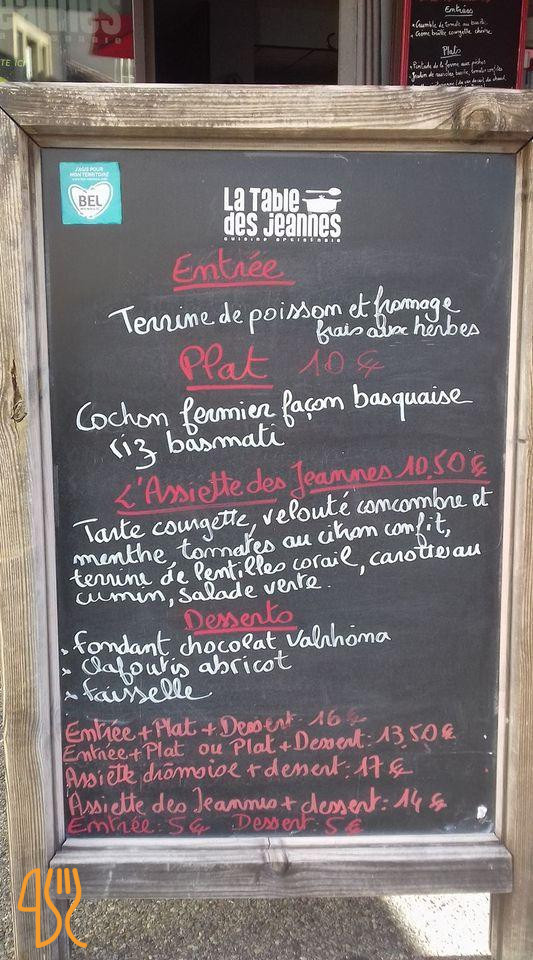 JEANNES
Entrées
Plats
J'AGIS POUR
MON TERRITOIRE
BEL
La Table
des Jeannes
Entrée
Terrine de poisson et fromage
frais aux herbes
Plat 10 €
Cochon fermier façon basquaise
riz basmati
L'Assiette des Jeannes 10,50 €
Tarte courgette, velouté concombre et
menthe, tomates au citron confit,
terrine de lentilles corail, carottes au
cumin, salade verte.
Desserts
fondant chocolat Valrhôna
clafoutis abricot
faisselle
Entrée + Plat + Dessert : 16 €
Entrée + Plat ou Plat + Dessert : 13,50 €
Assiette drômoise + dessert : 17 €
Assiette des Jeannes + dessert : 14 €
Entrée : 5 € Dessert : 5 €